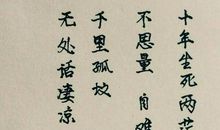 十年生死两茫
不思量 自难
千里孤坟
无处话凄凉